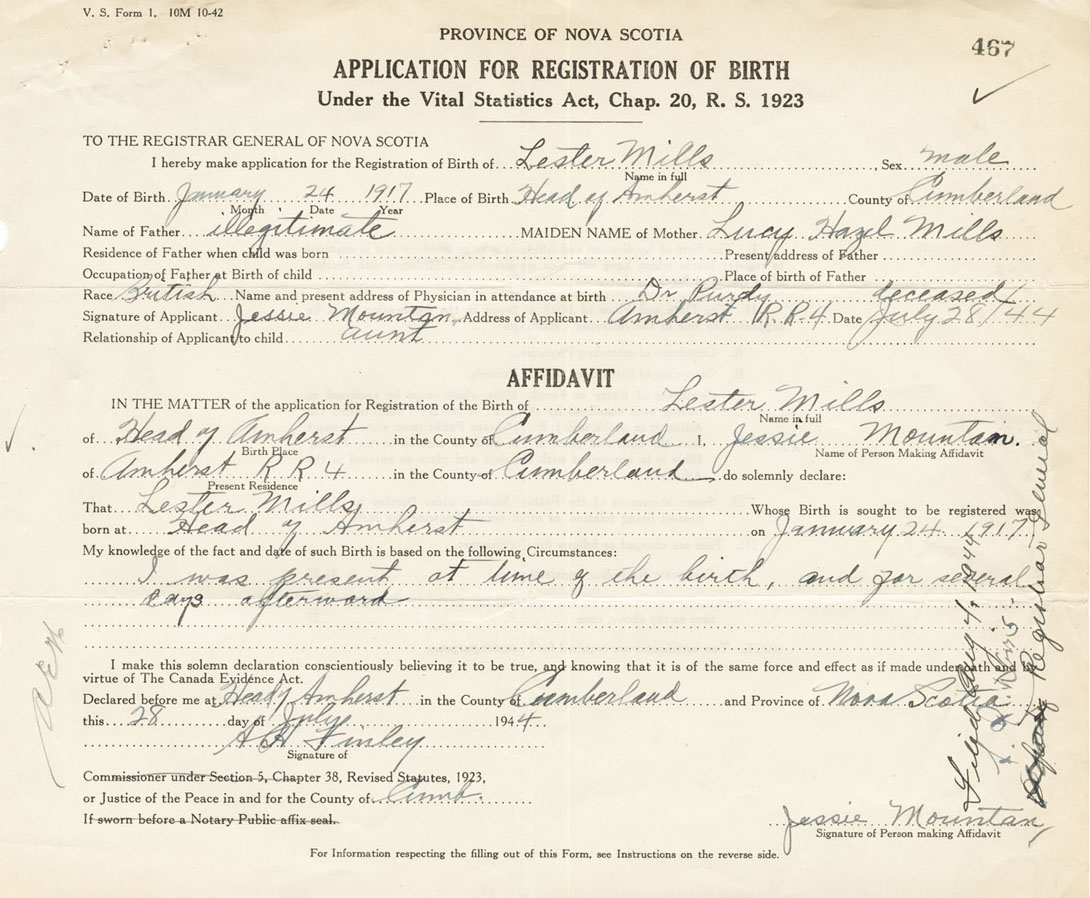 V. S. Form 1. 10M 10-42
PROVINCE OF NOVA SCOTIA
467
APPLICATION FOR REGISTRATION OF BIRTH
Under the Vital Statistics Act, Chap. 20, R. S. 1923
TO THE REGISTRAR GENERAL OF NOVA SCOTIA
I hereby make application for the Registration of Birth of Lester Mills Sex male
Name in full
Date of Birth January 24 1917 Place of Birth Head of Amherst County of Cumberland
Month Date Year
Name of Father illegitimate MAIDEN NAME of Mother Lucy Hazel Mills
Residence of Father when child was born Present address of Father
Occupation of Father at Birth of child Place of birth of Father
Race British Name and present address of Physician in attendance at birth Dr Purdy deceased
Signature of Applicant Jessie Mountan Address of Applicant Amherst R R 4 Date July 28/44
Relationship of Applicant to child aunt
AFFIDAVIT
IN THE MATTER of the application for Registration of the Birth of Lester Mills
Name in full
of Head of Amherst in the County of Cumberland I, Jessie Mountan.
Birth Place Name of Person Making Affidavit
of Amherst R R 4 in the County of Cumberland do solemnly declare:
Present Residence
That Lester Mills Whose Birth is sought to be registered was
born at Head of Amherst on January 24, 1917
My knowledge of the fact and date of such Birth is based on the following Circumstances:
I was present at time of the birth, and for several
days afterward
I make this solemn declaration conscientiously believing it to be true, and knowing that it is of the same force and effect as if made under oath and by
virtue of The Canada Evidence Act.
Declared before me at Head of Amherst in the County of Cumberland and Province of Nova Scotia
this 28 day of July 1944
A H Finley
Signature of
Commissioner under Section 5, Chapter 38, Revised Statutes, 1923,
or Justice of the Peace in and for the County of Cumb.
If sworn before a Notary Public affix seal.
Jessie Mountan
Signature of Person making Affidavit
For Information respecting the filling out of this Form, see Instructions on the reverse side.
Filed Aug 4, 1944
Deputy Registrar General